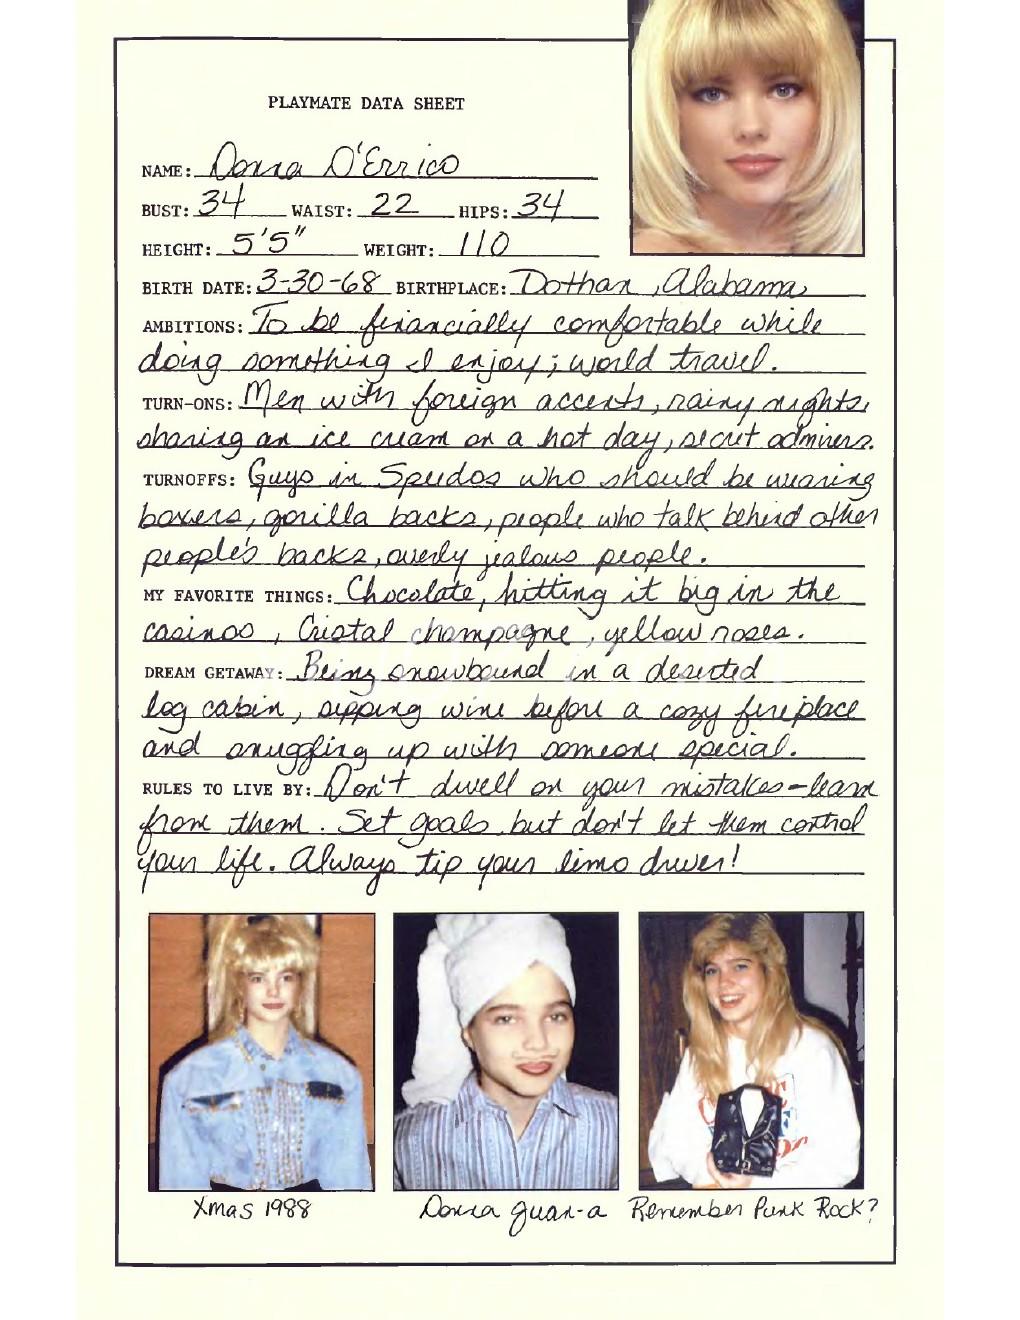 PLAYMATE DATA SHEET
NAME: Donna D'Errico
BUST: 34 WAIST: 22 HIPS: 34
HEIGHT: 5'5" WEIGHT: 110
BIRTH DATE: 3-30-68 BIRTHPLACE: Dothan, Alabama
AMBITIONS: To be financially comfortable while
doing something I enjoy; world travel.
TURN-ONS: Men with foreign accents, rainy nights,
sharing an ice cream on a hot day, secret admirers.
TURNOFFS: Guys in Speedos who should be wearing
boxers, gorilla backs, people who talk behind other
people's backs, overly jealous people.
MY FAVORITE THINGS: Chocolate, hitting it big in the
casinos, Cristal champagne, yellow roses.
DREAM GETAWAY: Being snowbound in a deserted
log cabin, sipping wine before a cozy fireplace
and snuggling up with someone special.
RULES TO LIVE BY: Don't dwell on your mistakes-learn
from them. Set goals, but don't let them control
your life. Always tip your limo driver!
Xmas 1988
Donna Juan-a
Remember Punk Rock?